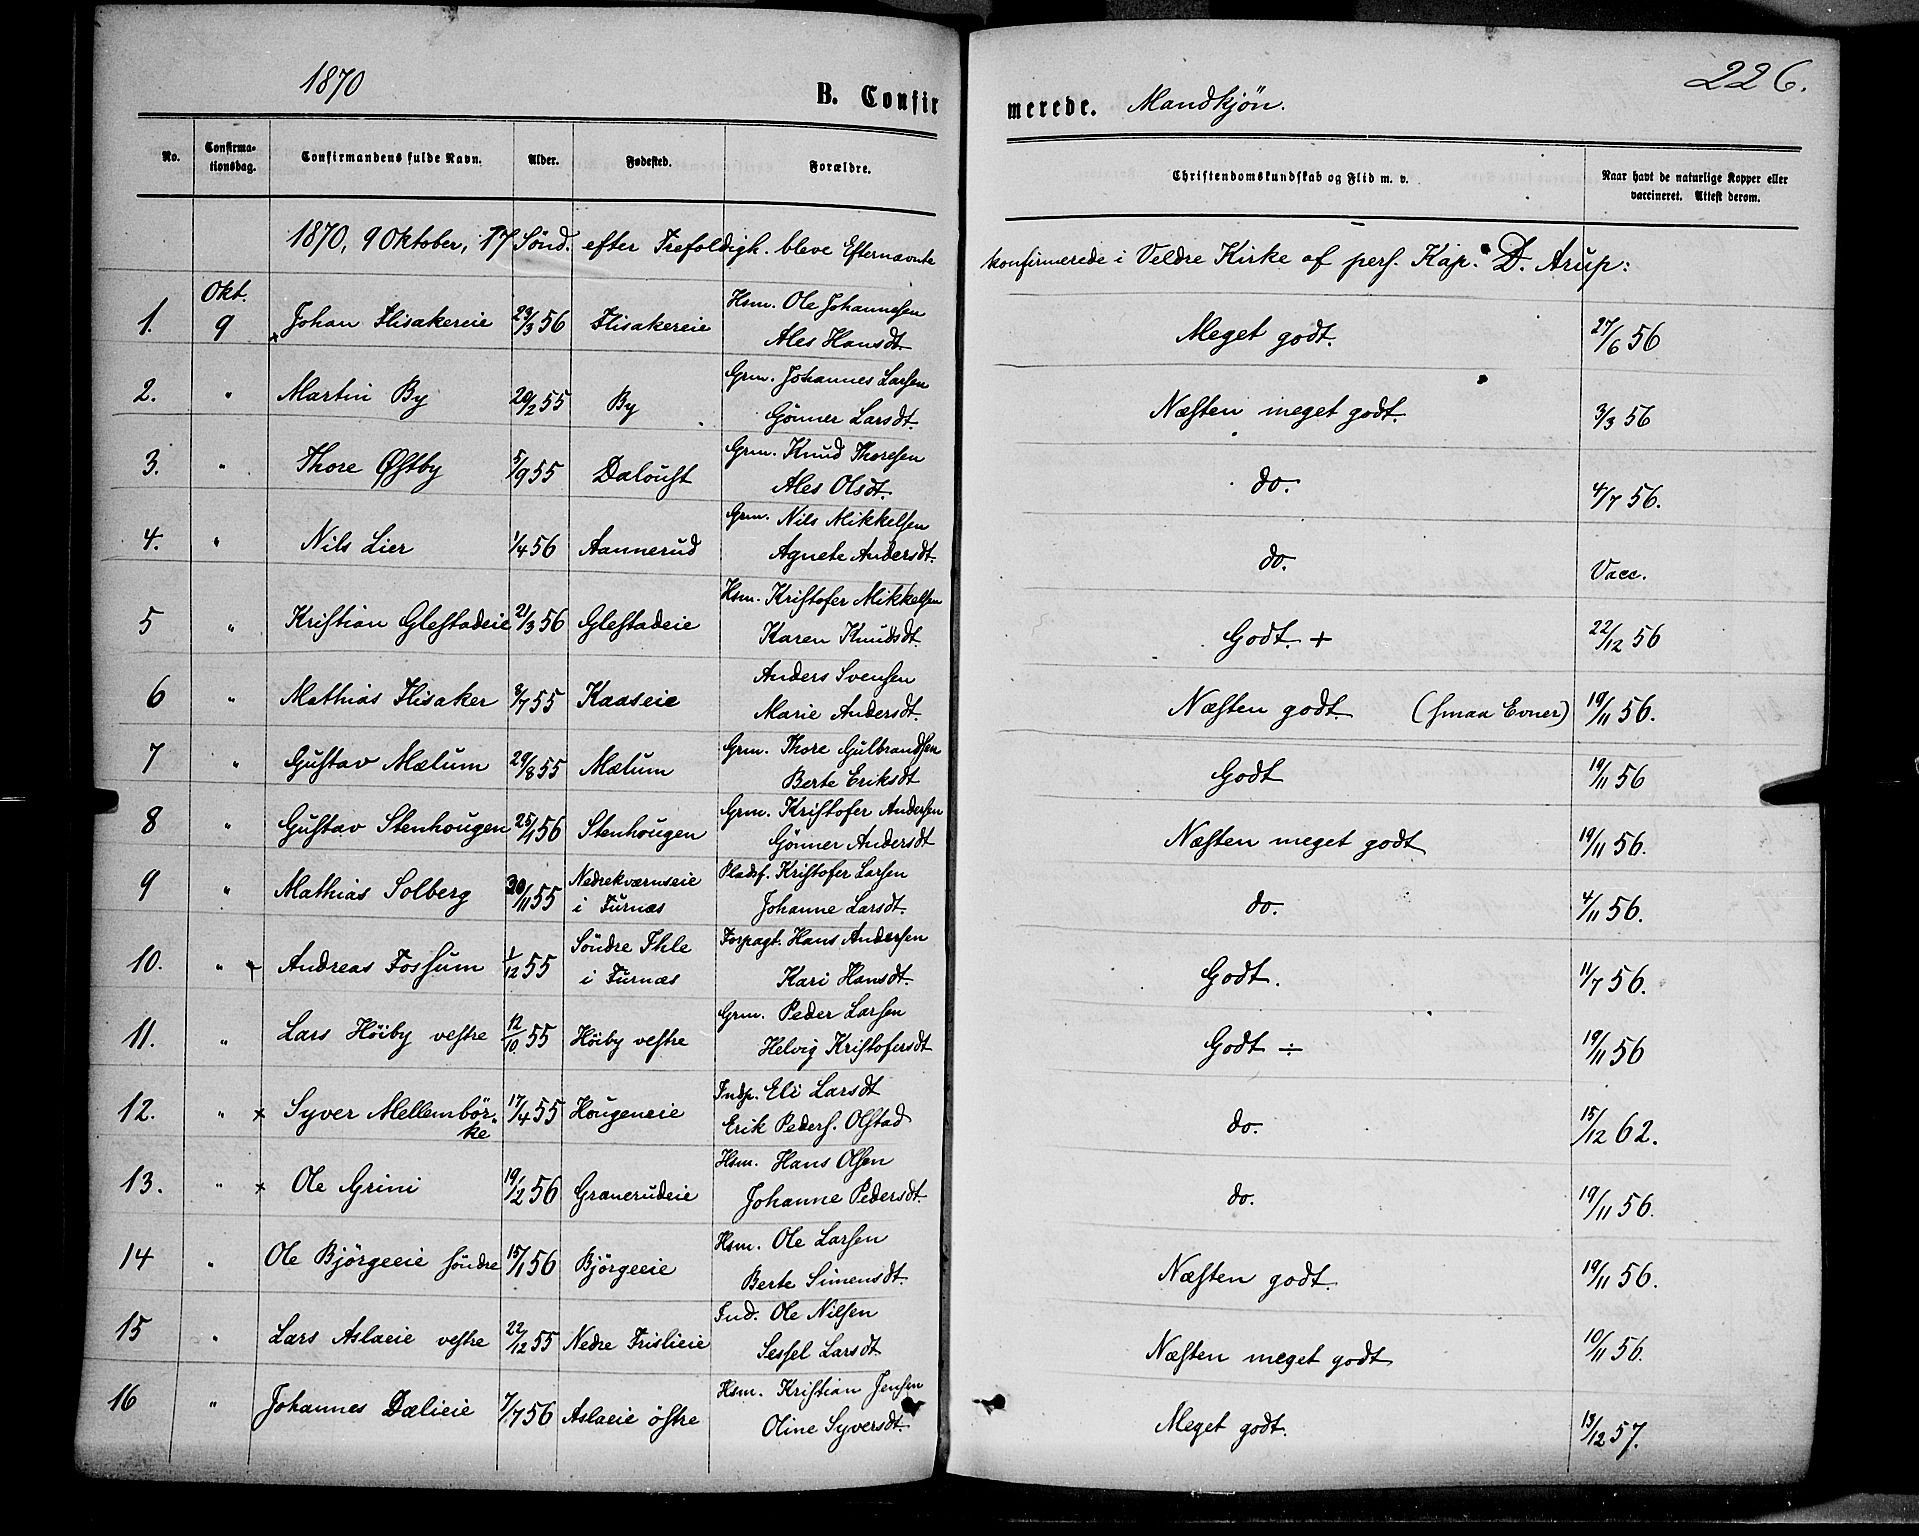 1870
226.
B. Confirmerede. Mandkjön.
No. Confirmationsdag. Confirmandens fulde Navn. Alder. Fødested. Forældre. Christendomskundskab og Flid m. v. Naar havt de naturlige Kopper eller vaccineret. Attest derom.
1870, 9 Oktober, 17 Sönd. efter Trefoldigh. bleve Efternævnte konfirmerede i Veldre Kirke af pers. Kap. D. Arup:
Okt.
1. 9 Johan Flisakereie 29/3 56 Flisakereie Hsm. Ole Johannesen Meget godt. 27/6 56
Ales Hansdt.
2. " Martin By 20/2 55 By Grm. Johannes Larsen Næsten meget godt. 3/3 56
Gönner Larsdt.
3. " Thore Østby 5/9 55 Daloust Grm. Knud Thoresen do. 4/7 56.
Ales Olsdt.
4. " Nils Lier 1/4 56 Aannerud Grm. Nils Mikkelsen do. Vacc.
Agnete Andersdt.
5 " Kristian Glestadeie 21/3 56 Glestadeie Hsm. Kristofer Mikkelsen Godt. + 22/12 56
Karen Knudsdt.
6 " Mathias Flisaker 3/7 55 Kaaseie Anders Svensen Næsten godt. (smaa Evner) 19/11 56.
Marie Andersdt.
7 " Gustav Mælum 29/8 55 Mælum Grm. Thore Gulbrandsen Godt 19/11 56
Berte Eriksdt
8 " Gustav Stenhougen 25/1 56 Stenhougen Grm. Kristofer Andersen Næsten meget godt 19/11 56.
Gönner Andersdt
9 " Mathias Solberg 30/11 55 Nedrekværnseie Pladsf. Kristofer Larsen do. 4/11 56.
i Furnæs Johanne Larsdt.
10. " Andreas Fossum 1/12 55 Söndre Ihle Forpagt. Hans Andersen Godt. 11/7 56.
i Furnæs Kari Hansdt.
11. " Lars Höiby vestre 12/10. 55 Höiby vestre Grm. Peder Larsen Godt ÷ 19/11 56
Helvig Kristofersdt
12. " x Syver Mellembör- 17/4 55 Hougeneie Indp. Eli Larsdt do. 15/12 62.
ke Erik Peders. Olstad
13. " x Ole Grini 19/2 56 Granerudeie Hsm. Hans Olsen do. 19/11 56.
Johanne Pedersdt.
14 " Ole Bjørgeeie söndre 15/1 56 Bjørgeeie Hsm. Ole Larsen Næsten godt. 19/11 56.
Berte Simensdt.
15 " Lars Aslaeie vestre 22/12 55 Nedre Frislieie Ind. Ole Nilsen Næsten meget godt 10/11 56.
Sessel Larsdt
16 " Johannes Dælieie 7/7 56 Aslaeie östre Hsm. Kristian Jensen Meget godt. 13/12 57.
Oline Syversdt.